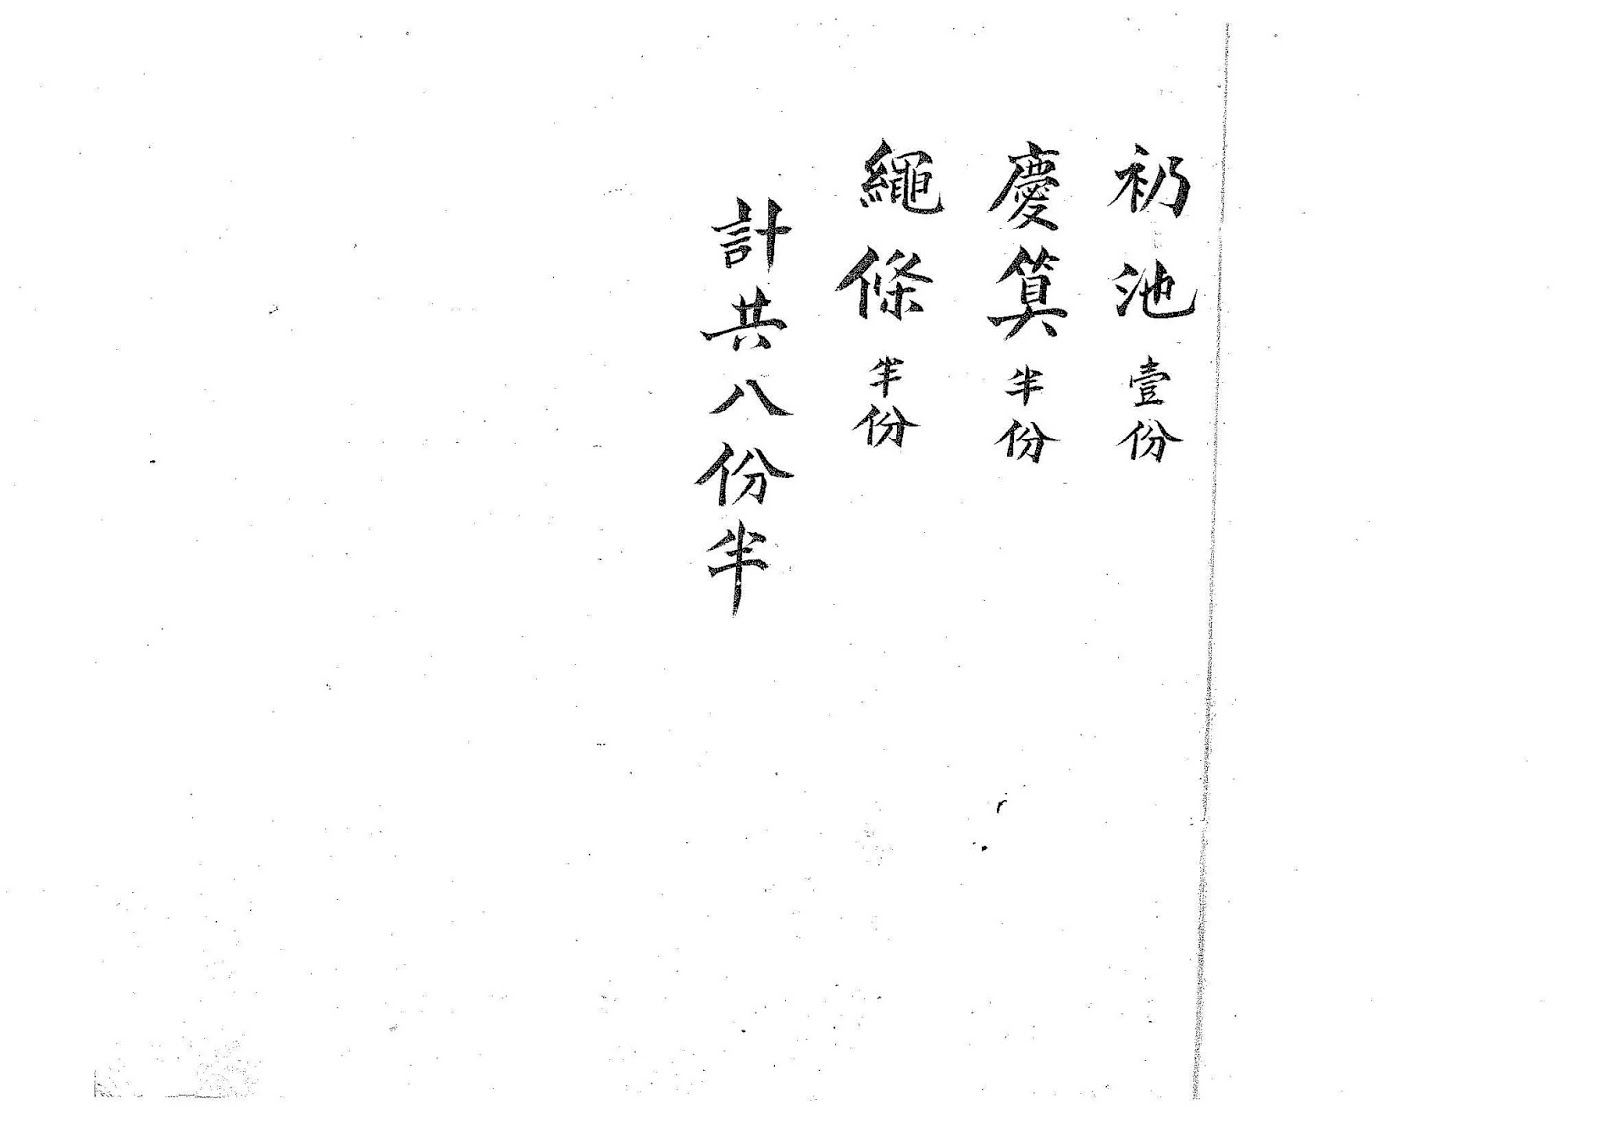 礽池壹份
慶算半份
繩條半份
計共八份半